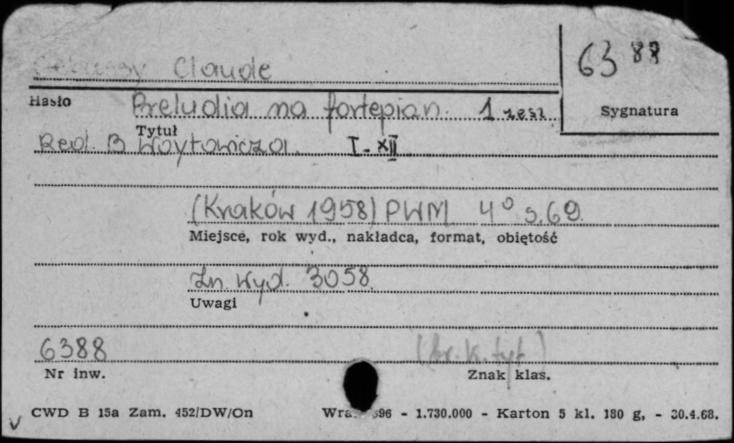 Debussy Claude
6388
Hasło
Preludia na fortepian. 1 zesz.
Sygnatura
Tytuł
Red. B Woytowicza. I-XII
(Kraków 1958) PWM 4° s.69.
Miejsce, rok wyd., nakładca, format, objętość
Zn. wyd. 3058.
Uwagi
6388 (br. k. tyt)
Nr inw. Znak klas.
CWD B 15a Zam. 452/DW/On 396 - 1.730.000 - Karton 5 kl. 180 g, - 30.4.68.